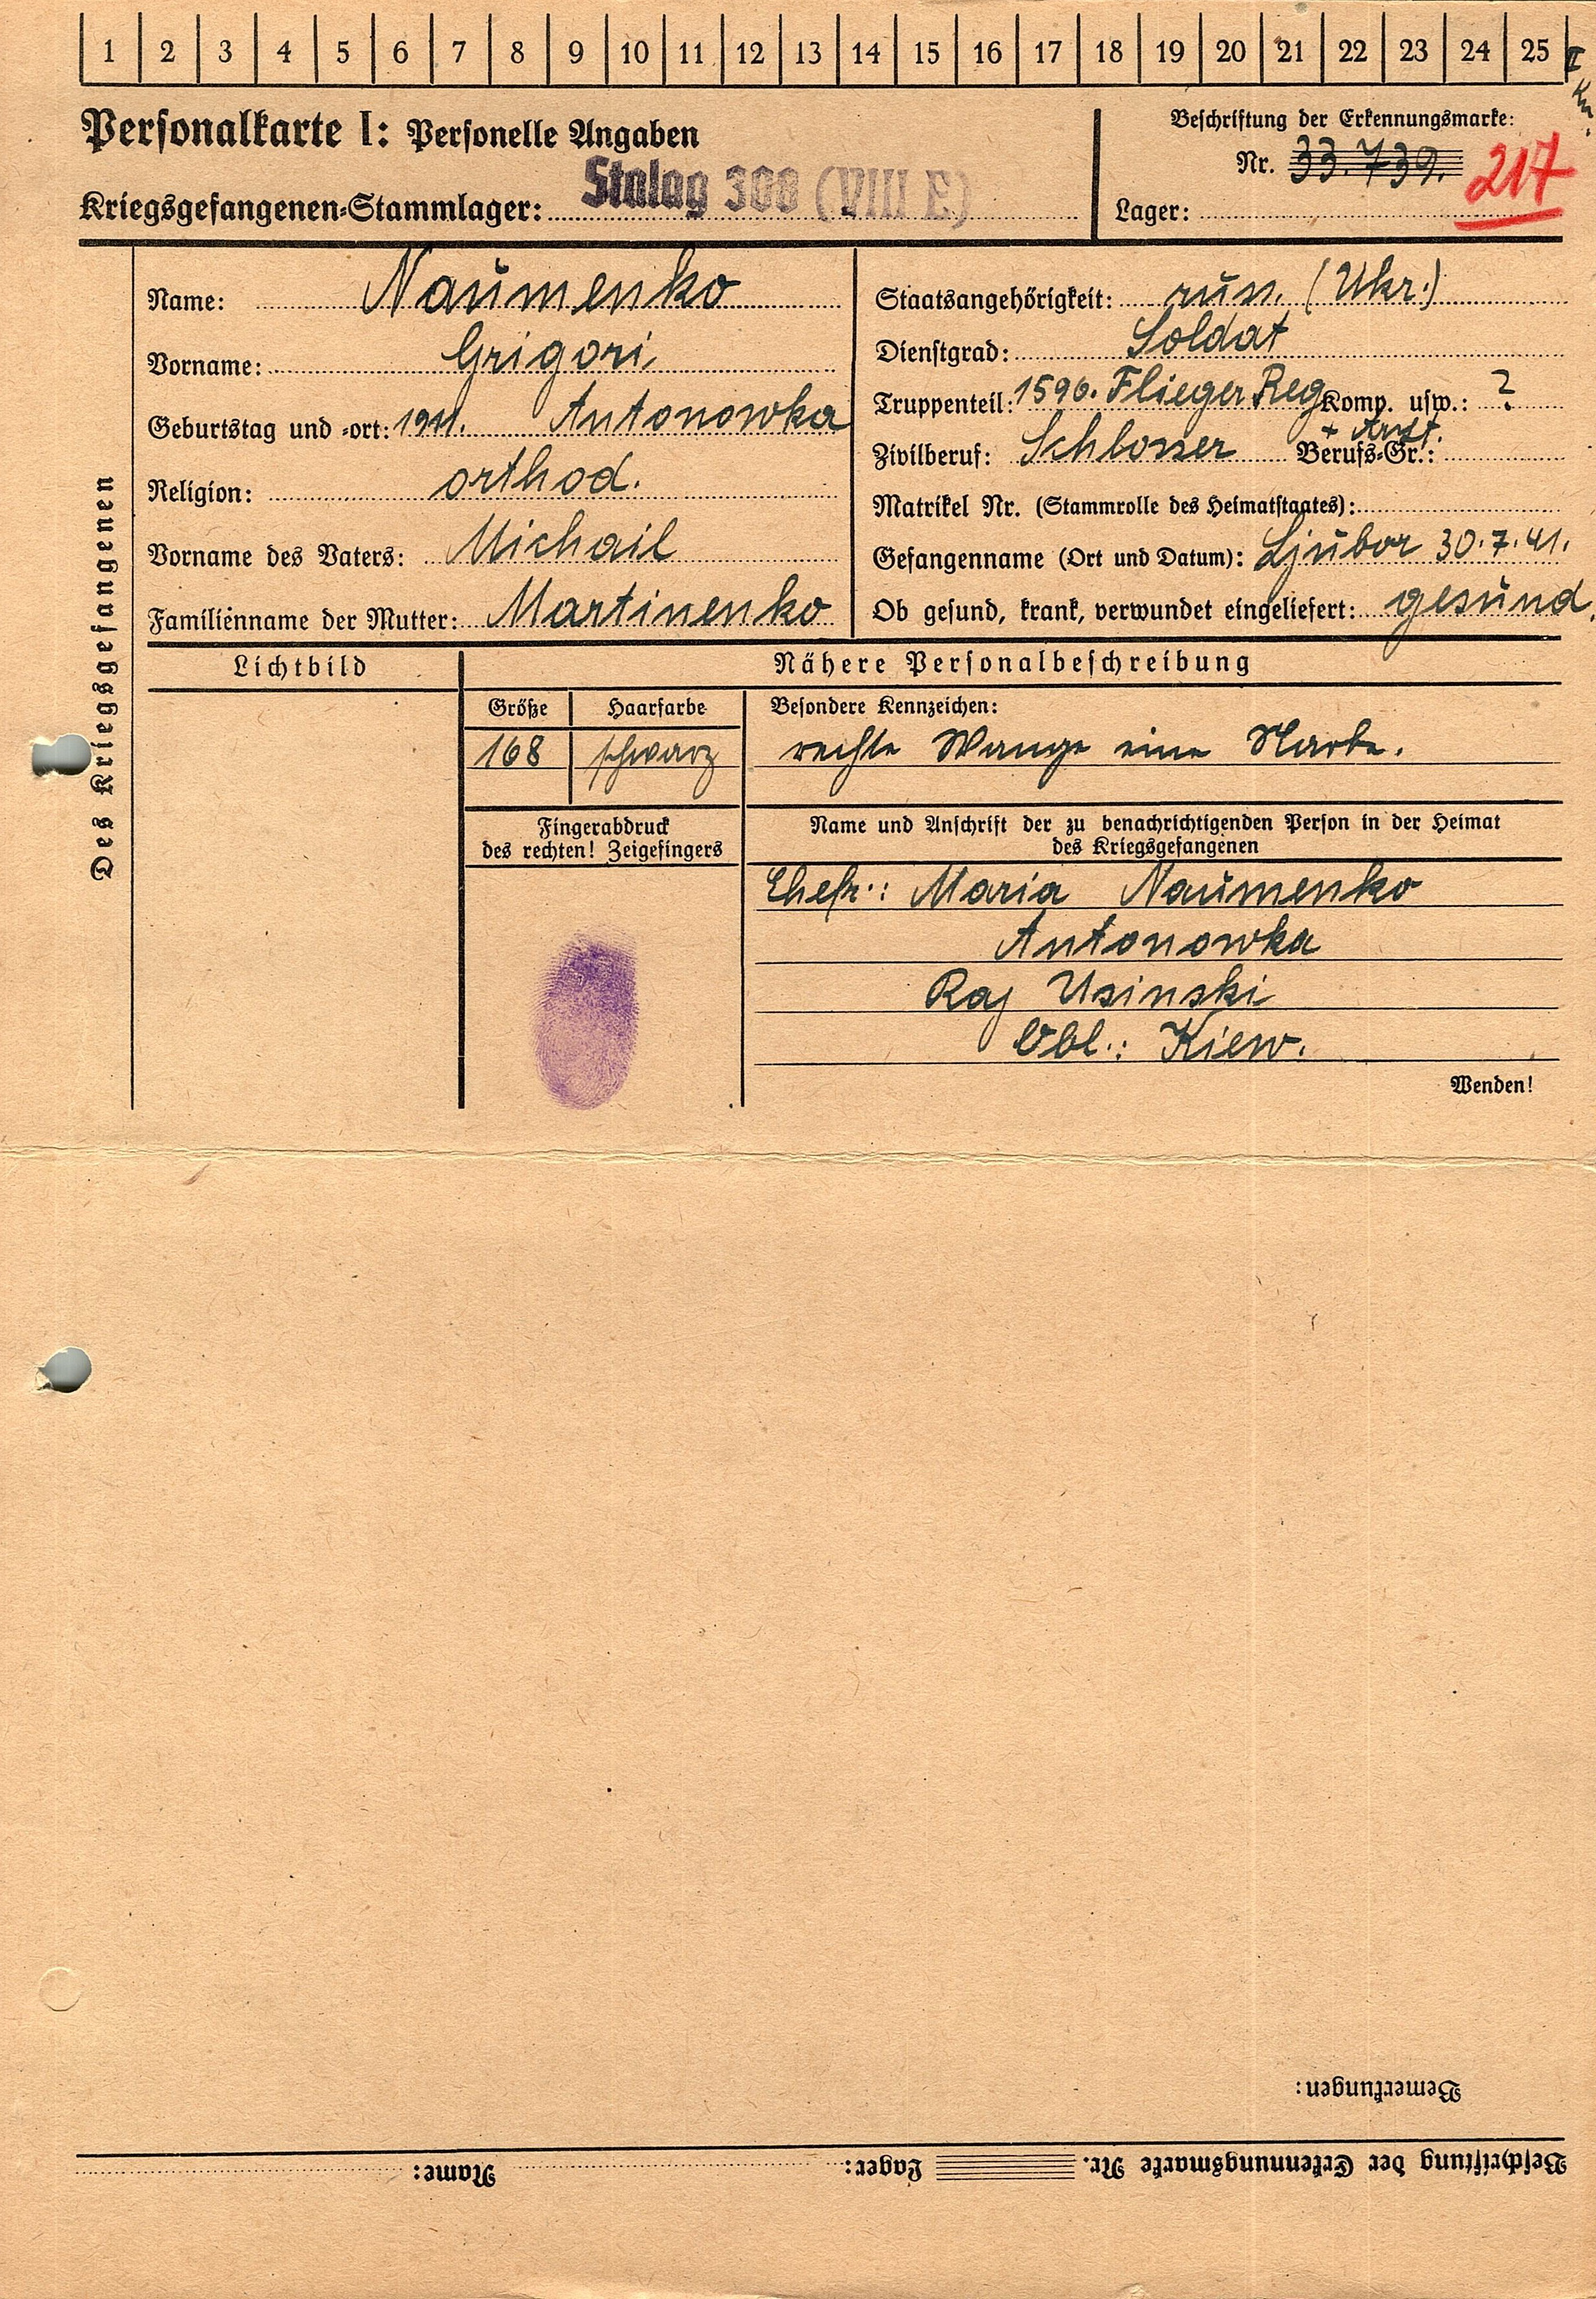 1 2 3 4 5 6 7 8 9 10 11 12 13 14 15 16 17 18 19 20 21 22 23 24 25
Personalkarte I: Personelle Angaben
Kriegsgefangenen-Stammlager: Stalag 308 (VIII E)
Beschriftung der Erkennungsmarke:
Nr. 33.739. 217
Lager:
Des Kriegsgefangenen
Name: Naumenko
Vorname: Grigori
Geburtstag und -ort: 1911. Antonowka
Religion: orthod.
Vorname des Vaters: Michail
Familienname der Mutter: Martinenko
Staatsangehörigkeit: russ. (Ukr.)
Dienstgrad: Soldat
Truppenteil: 1596. Flieger Reg Komp. usw.: ?
Zivilberuf: Schlosser Berufs-Gr.:
Matrikel Nr. (Stammrolle des Heimatstaates):
Gefangenname (Ort und Datum): Ljubor 30.7.41.
Ob gesund, krank, verwundet eingeliefert: gesund.
Lichtbild
Nähere Personalbeschreibung
Größe Haarfarbe Besondere Kennzeichen:
168 schwarz rechte Wange eine Narbe.
Fingerabdruck
des rechten! Zeigefingers
Name und Anschrift der zu benachrichtigenden Person in der Heimat
des Kriegsgefangenen
Ehefr.: Maria Naumenko
Antonowka
Raj Usinski
Obl.: Kiew.
Wenden!
Bemerkungen:
Beschriftung der Erkennungsmarke Nr. Lager: Name: